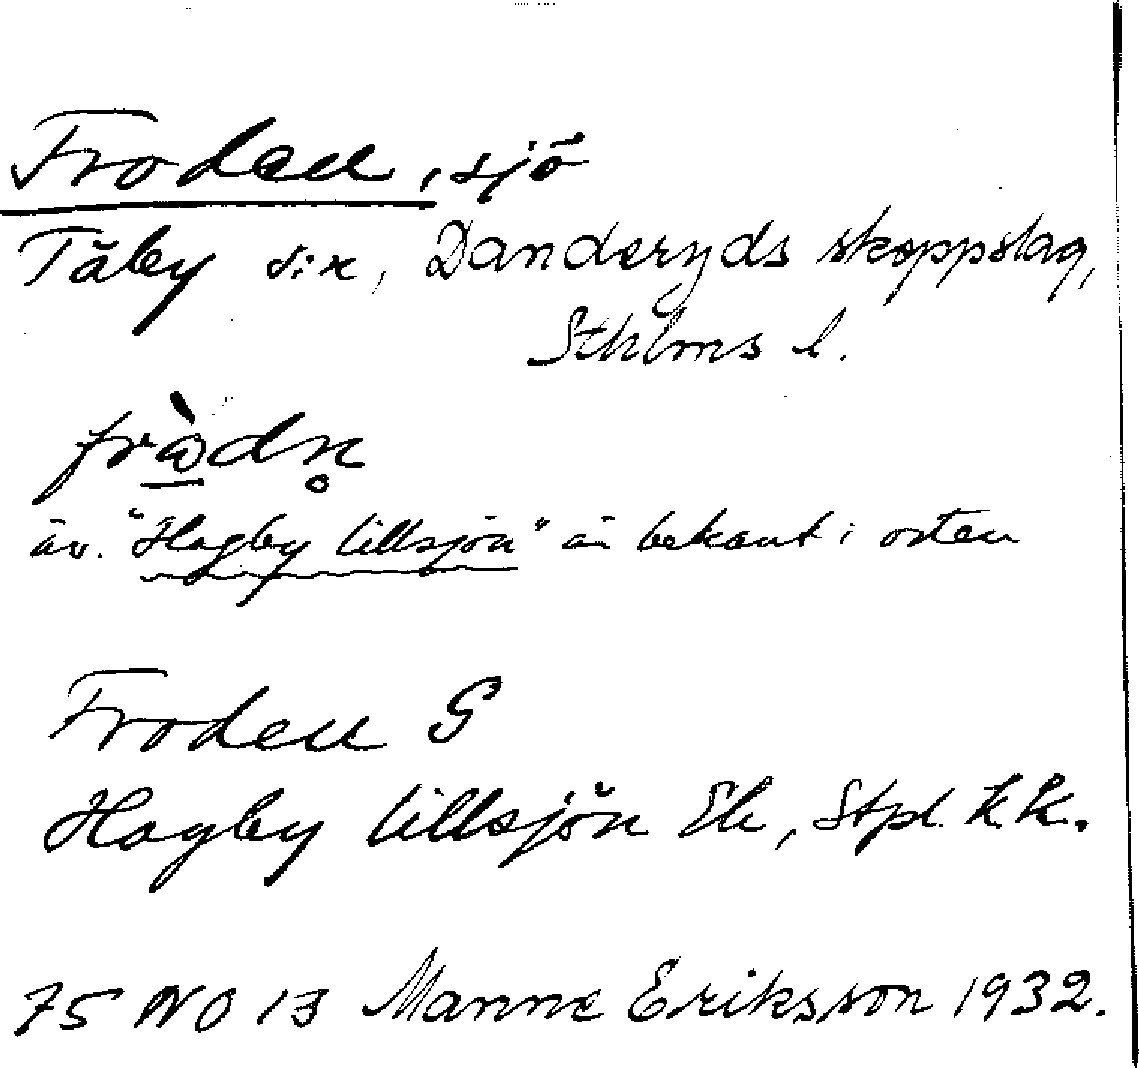 Froden, sjö
Täby s:n, Danderyds skeppslag,
Sthlms l.
frὼdn̥
äv. "Hagby lillsjön" är bekant i orten
Froden G
Hagby lillsjön Ek, Stpl. k.k.
75 NO 13 Manne Eriksson 1932.